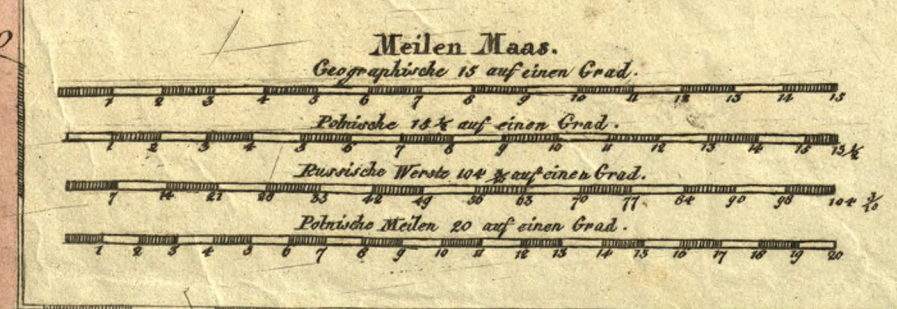 Meilen Maas.
Geographische 15 auf einen Grad.
1 2 3 4 5 6 7 8 9 10 11 12 13 14 15
Polnische 15 ½ auf einen Grad.
1 2 3 4 5 6 7 8 9 10 11 12 13 14 15 15 ½
Russische Werste 104 3/10 auf einen Grad.
7 14 21 28 35 42 49 56 63 70 77 84 90 98 104 3/10
Polnische Meilen 20 auf einen Grad.
1 2 3 4 5 6 7 8 9 10 11 12 13 14 15 16 17 18 19 20